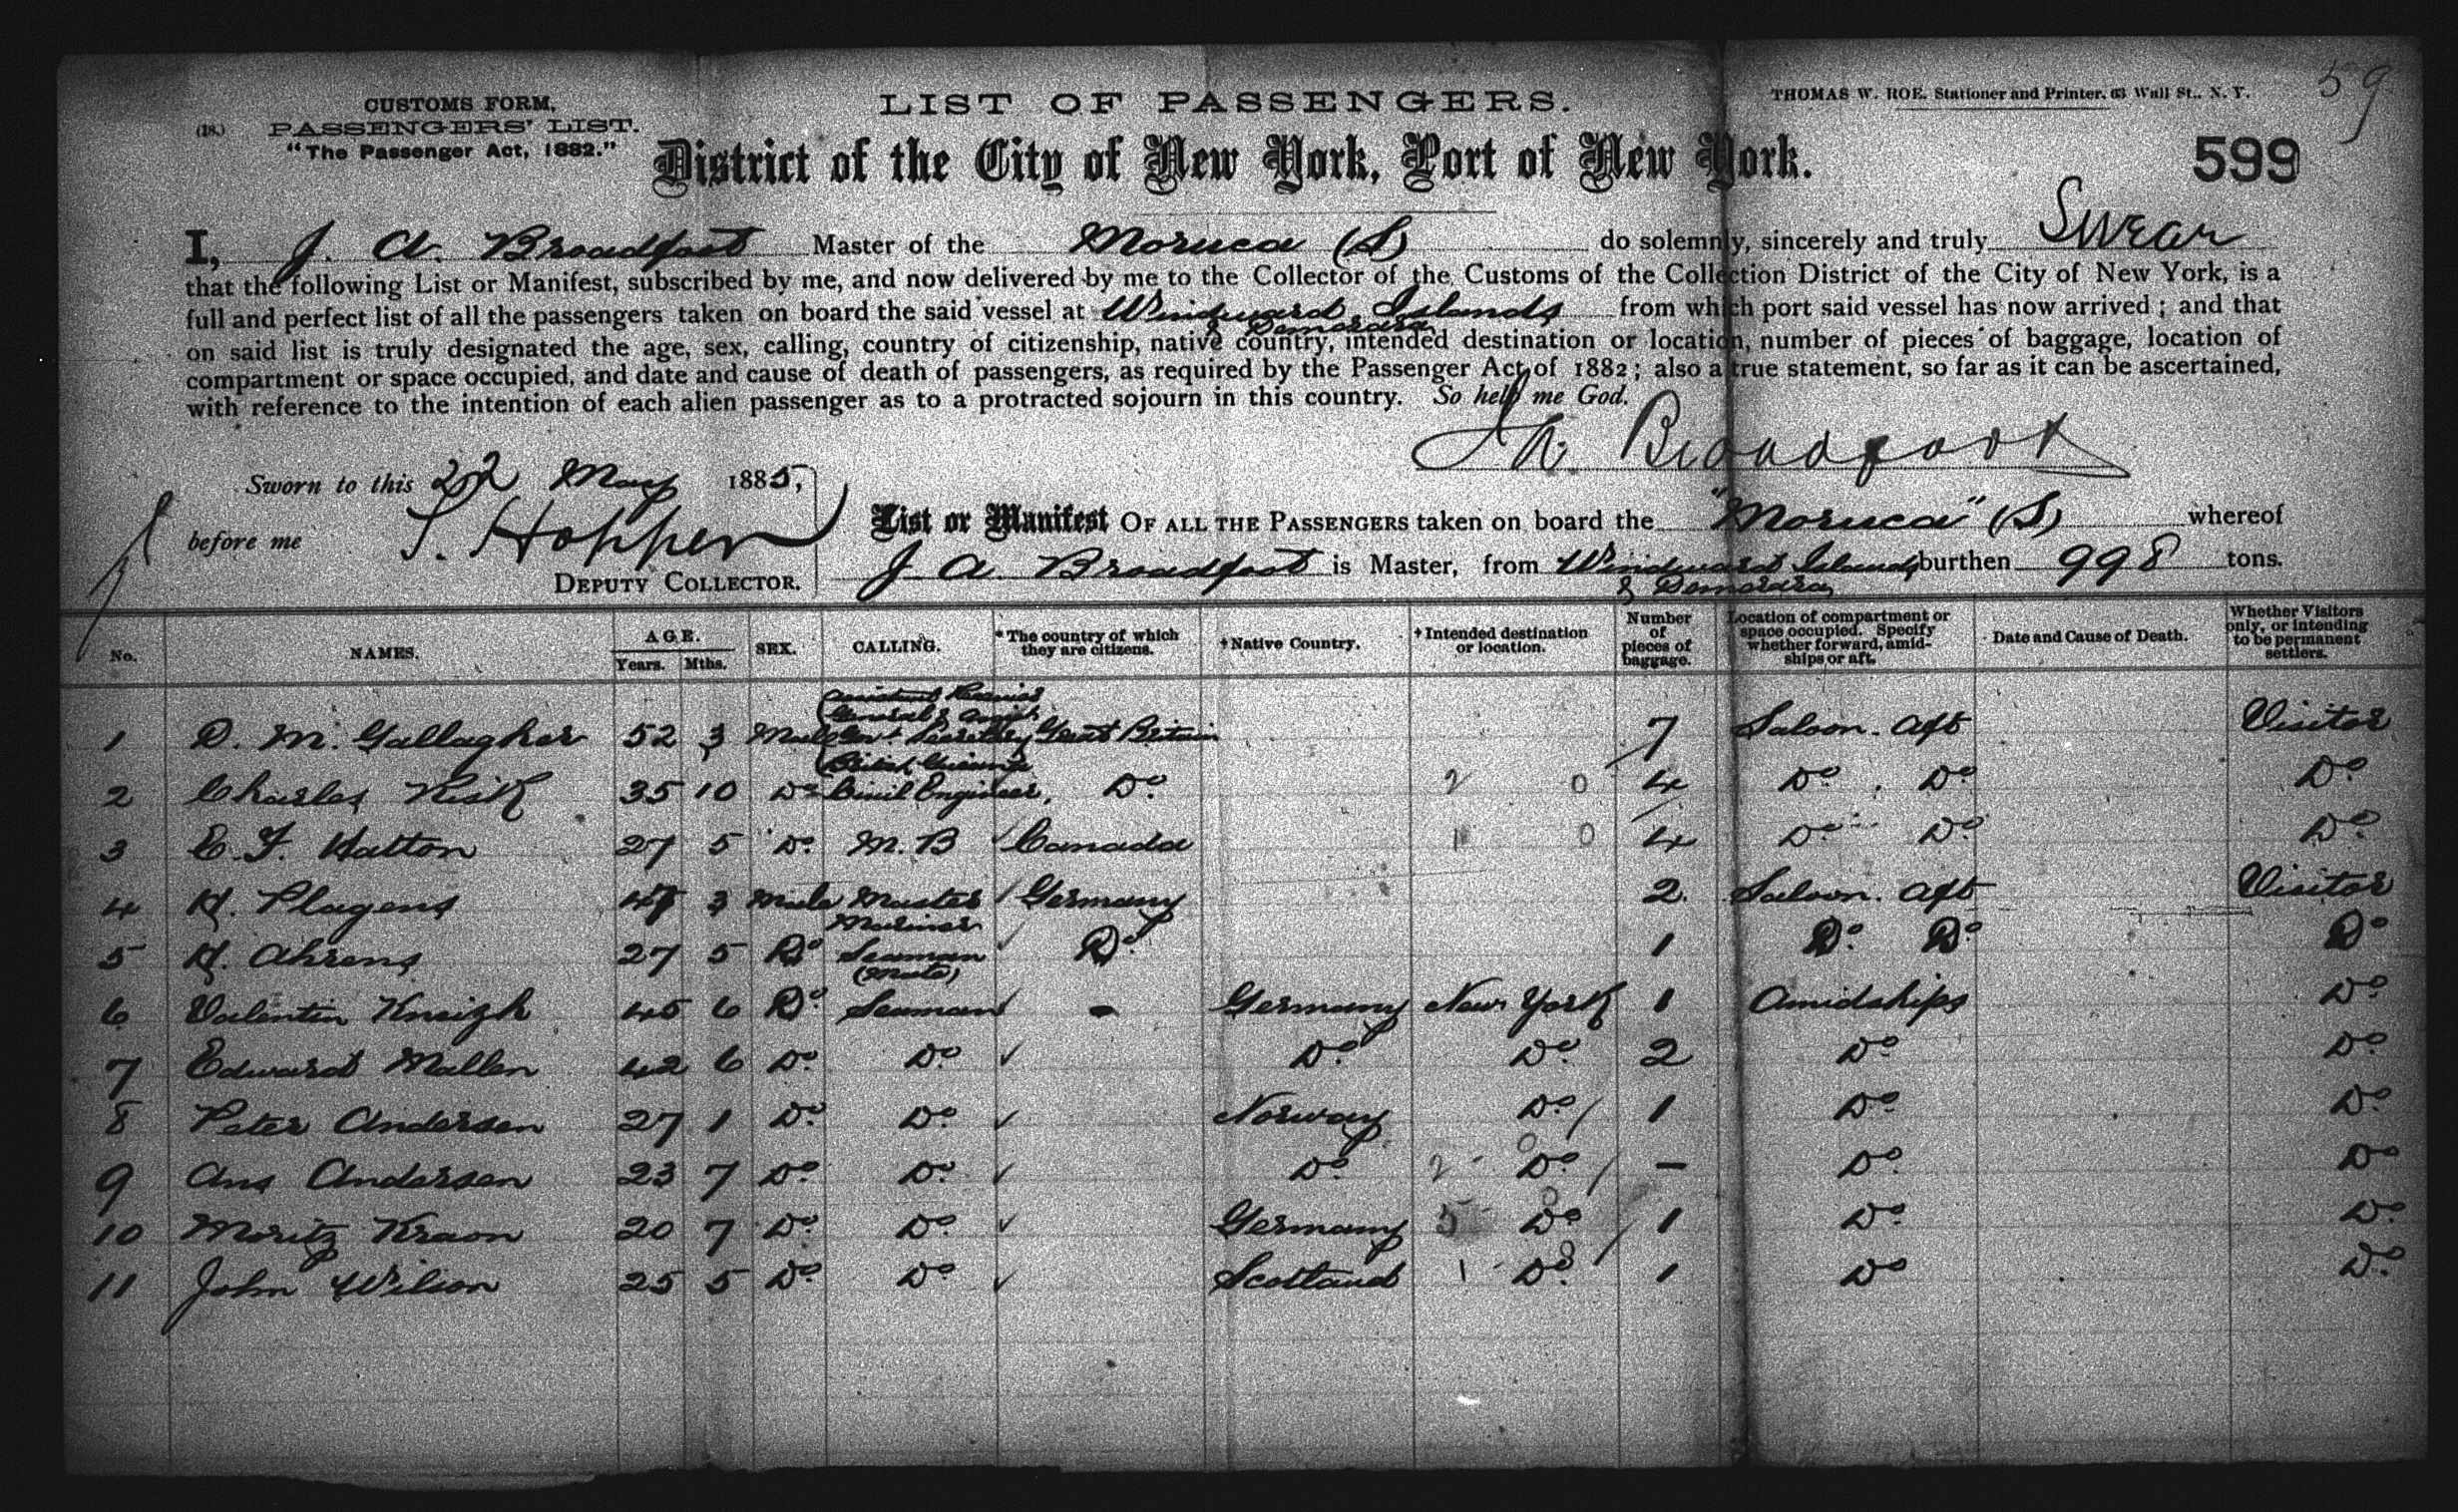 59
CUSTOMS FORM.
LIST OF PASSENGERS.
THOMAS W. ROE. Stationer and Printer. 63 Wall St., N. Y.
(18.) PASSENGERS' LIST.
"The Passenger Act, 1882."
District of the City of New York, Port of New York.
599
I, J. A. Broadfoot Master of the Moruca (S) do solemnly, sincerely and truly Swear
that the following List or Manifest, subscribed by me, and now delivered by me to the Collector of the Customs of the Collection District of the City of New York, is a
full and perfect list of all the passengers taken on board the said vessel at Windward Islands from which port said vessel has now arrived ; and that
& Demarara
on said list is truly designated the age, sex, calling, country of citizenship, native country, intended destination or location, number of pieces of baggage, location of
compartment or space occupied, and date and cause of death of passengers, as required by the Passenger Act of 1882 ; also a true statement, so far as it can be ascertained,
with reference to the intention of each alien passenger as to a protracted sojourn in this country. So help me God.
J A Broadfoot
Sworn to this 22 May 1885,
before me S. Hopper
DEPUTY COLLECTOR.
List or Manifest OF ALL THE PASSENGERS taken on board the "Moruca" (S) whereof
J A Broadfoot is Master, from Windward Islands burthen 998 tons.
& Demarara
No. NAMES. AGE. Years. Mths. SEX. CALLING. *The country of which they are citizens. †Native Country. †Intended destination or location. Number of pieces of baggage. Location of compartment or space occupied. Specify whether forward, amidships or aft. Date and Cause of Death. Whether Visitors only, or intending to be permanent settlers.
1 D. M. Gallagher 52 3 Male Assistant Receiver General & Assist. Govt. Secretary British Guiana Great Britain 7 Saloon. Aft Visitor
2 Charles 35 10 Do Civil Engineer, Do. 2 0 4 Do. Do. Do.
3 E. F. Hatton 27 5 Do. M. B Canada 1 0 4 Do. Do. Do.
4 H. Plagens 47 3 Male Master Mariner Germany 2. Saloon. Aft Visitor
5 H. Ahrens 27 5 Do Seaman (Mate) Do. 1 Do. Do. Do
6 Valentin 45 6 Do. Seaman - Germany New York 1 Amidships Do.
7 Edward Mallen 42 6 Do. Do. Do. Do. 2 Do. Do.
8 Peter Andersen 27 1 Do. Do. Norway Do. 1 Do. Do.
9 Ans Andersen 23 7 Do. Do. Do. 2 Do. - Do. Do
10 Moritz Kraon 20 7 Do. Do. Germany 5 Do. 1 Do. Do.
11 John Wilson 25 5 Do. Do. Scotland 1 Do. 1 Do Do.